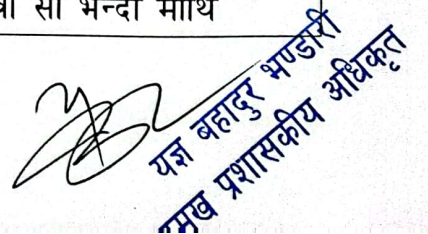 सो भन्दा माथि
यज्ञ बहादुर भण्डारी
प्रमुख प्रशासकीय अधिकृत